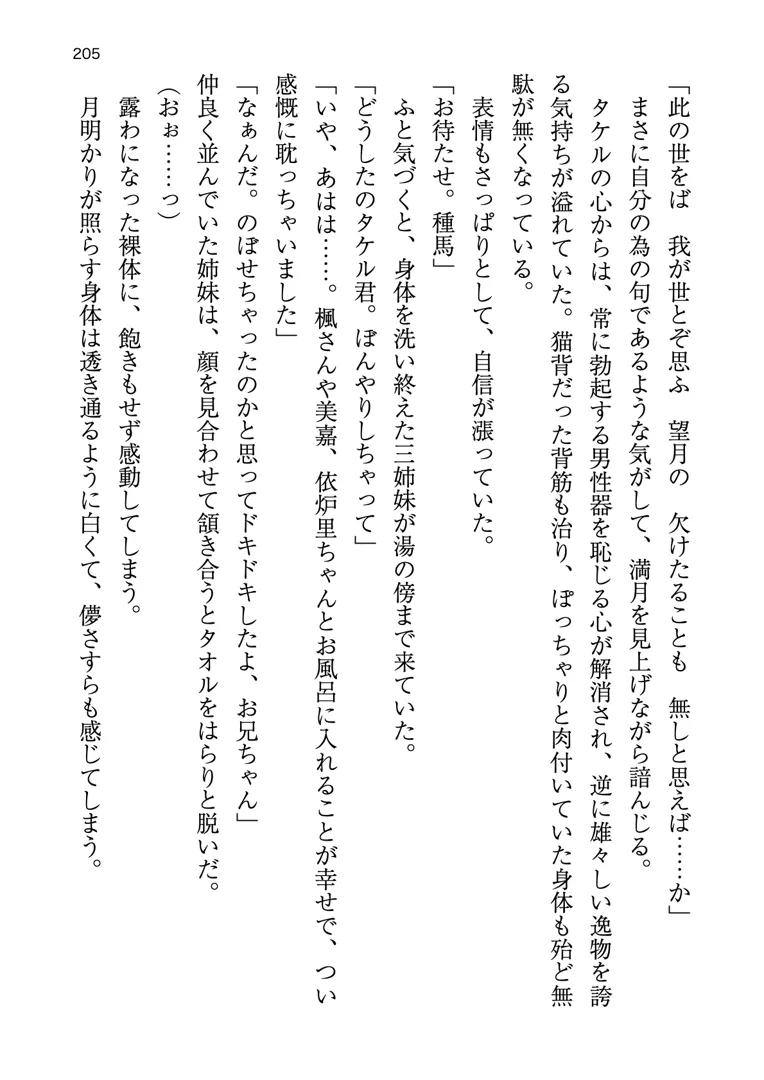 205
「此の世をば　我が世とぞ思ふ　望月の　欠けたることも　無しと思えば……か」
まさに自分の為の句であるような気がして、満月を見上げながら諳んじる。
タケルの心からは、常に勃起する男性器を恥じる心が解消され、逆に雄々しい逸物を誇
る気持ちが溢れていた。猫背だった背筋も治り、ぽっちゃりと肉付いていた身体も殆ど無
駄が無くなっている。
表情もさっぱりとして、自信が漲っていた。
「お待たせ。種馬」
ふと気づくと、身体を洗い終えた三姉妹が湯の傍まで来ていた。
「どうしたのタケル君。ぼんやりしちゃって」
「いや、あはは……。楓さんや美嘉、依炉里ちゃんとお風呂に入れることが幸せで、つい
感慨に耽っちゃいました」
「なぁんだ。のぼせちゃったのかと思ってドキドキしたよ、お兄ちゃん」
仲良く並んでいた姉妹は、顔を見合わせて頷き合うとタオルをはらりと脱いだ。
（おぉ……っ）
露わになった裸体に、飽きもせず感動してしまう。
月明かりが照らす身体は透き通るように白くて、儚さすらも感じてしまう。